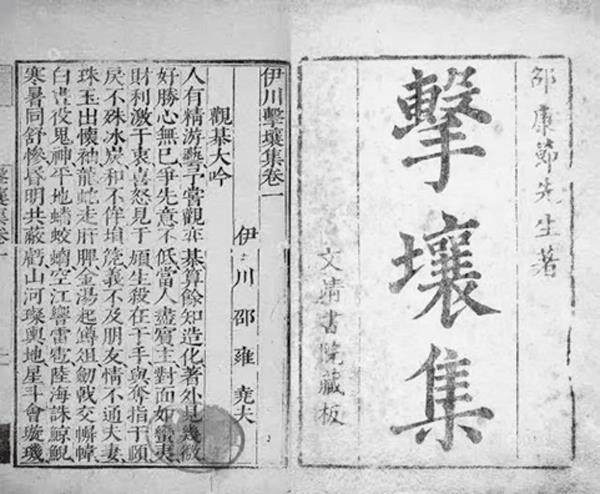 邵康節先生著
擊壤集
文靖書院藏板
伊川擊壤集卷一
伊川邵雍堯夫
觀棊大吟
人有精游藝予嘗觀弈棊算餘知造化著外見幾微
好勝心無已爭先意不低當人盡賓主對面如蠻夷
財利激于衷喜怒見于頄生殺在于手與奪指于頤
戾不殊冰炭和不侔塤箎義不及朋友情不通夫妻
珠玉出懷袖龍蛇走肝脾金湯起罇俎劒戟交幈幃
白晝役鬼神平地蟠蛟螭空江響雷雹陸海誅鯨鯢
寒暑同舒慘昏明共蔽虧山河璨輿地星斗會璇璣